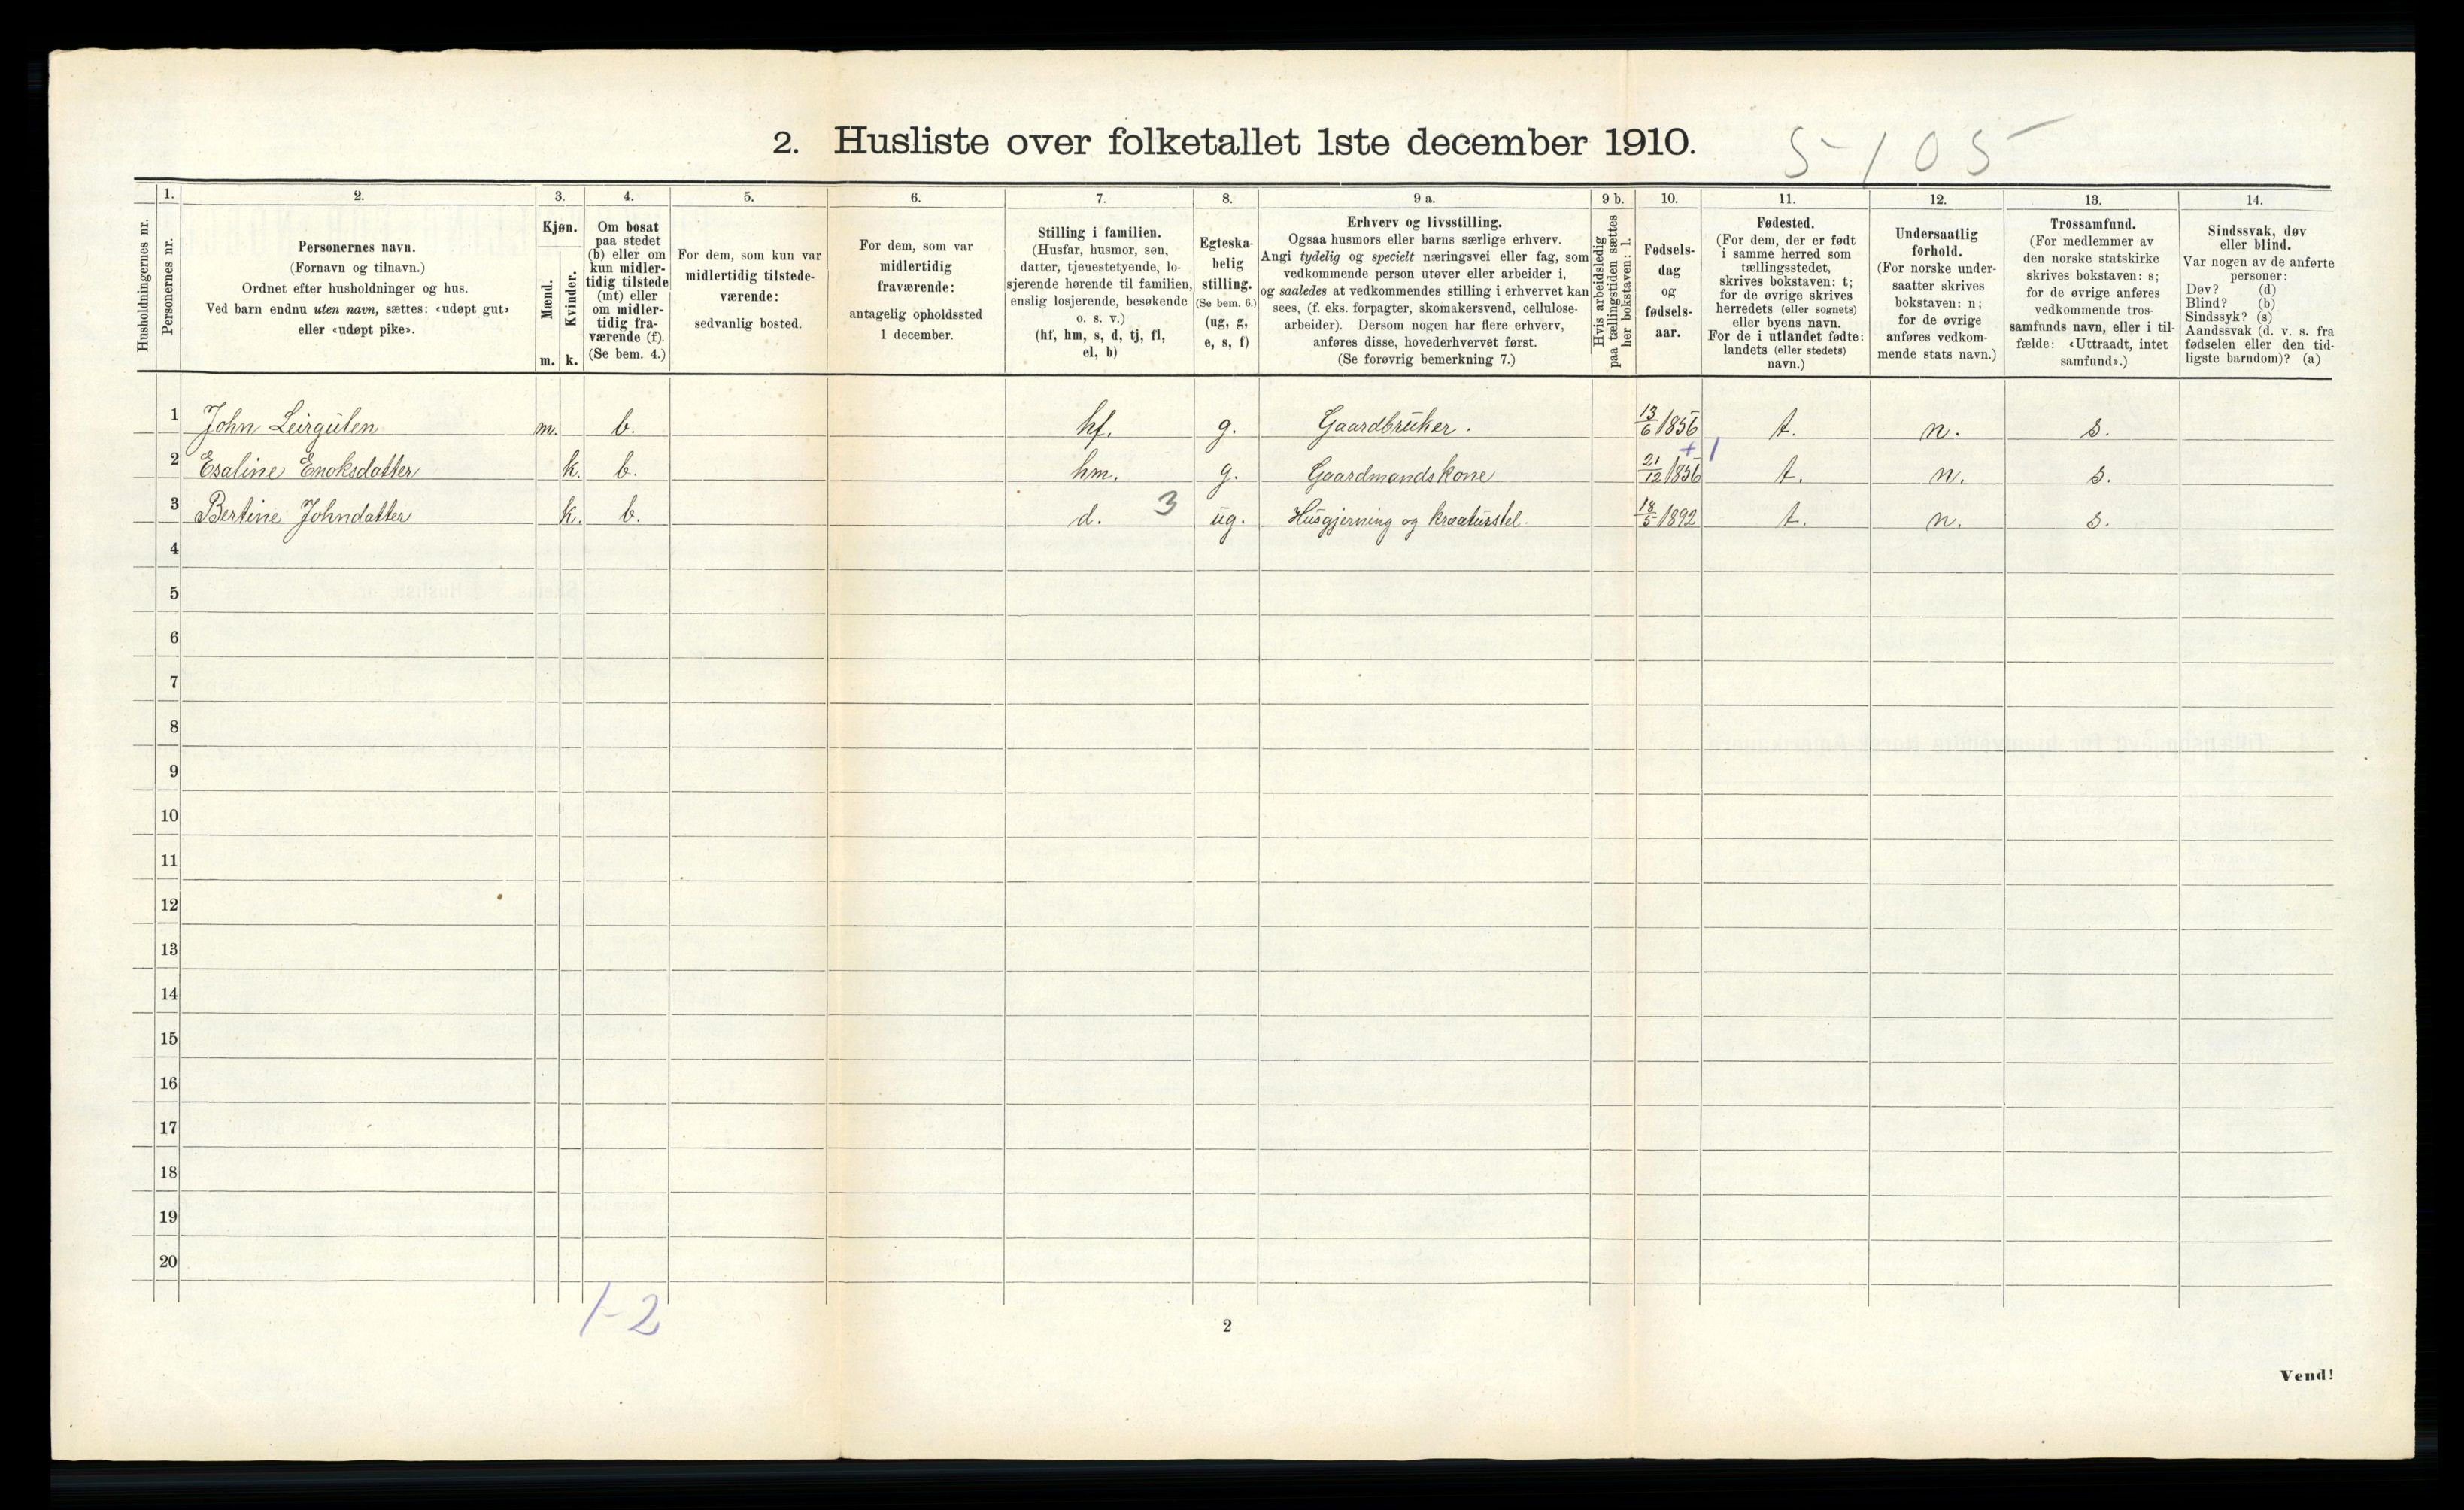 2. Husliste over folketallet 1ste december 1910.
5-105
Husholdningernes nr.
1.
Personernes nr.
2.
Personernes navn.
(Fornavn og tilnavn.)
Ordnet efter husholdninger og hus.
Ved barn endnu uten navn, sættes: «udøpt gut»
eller «udøpt pike».
3.
Kjøn.
Mænd.
Kvinder.
m. k.
4.
Om bosat
paa stedet
(b) eller om
kun midler-
tidig tilstede
(mt) eller
om midler-
tidig fra-
værende (f).
(Se bem. 4.)
5.
For dem, som kun var
midlertidig tilstede-
værende:
sedvanlig bosted.
6.
For dem, som var
midlertidig
fraværende:
antagelig opholdssted
1 december.
7.
Stilling i familien.
(Husfar, husmor, søn,
datter, tjenestetyende, lo-
sjerende hørende til familien,
enslig losjerende, besøkende
o. s. v.)
(hf, hm, s, d, tj, fl,
el, b)
8.
Egteska-
belig
stilling.
(Se bem. 6.)
(ug, g,
e, s, f)
9 a.
Erhverv og livsstilling.
Ogsaa husmors eller barns særlige erhverv.
Angi tydelig og specielt næringsvei eller fag, som
vedkommende person utøver eller arbeider i,
og saaledes at vedkommendes stilling i erhvervet kan
sees, (f. eks. forpagter, skomakersvend, cellulose-
arbeider). Dersom nogen har flere erhverv,
anføres disse, hovederhvervet først.
(Se forøvrig bemerkning 7.)
9 b.
Hvis arbeidsledig
paa tællingstiden sættes
her bokstaven: l.
10.
Fødsels-
dag
og
fødsels-
aar.
11.
Fødested.
(For dem, der er født
i samme herred som
tællingsstedet,
skrives bokstaven: t;
for de øvrige skrives
herredets (eller sognets)
eller byens navn.
For de i utlandet fødte:
landets (eller stedets)
navn.)
12.
Undersaatlig
forhold.
(For norske under-
saatter skrives
bokstaven: n;
for de øvrige
anføres vedkom-
mende stats navn.)
13.
Trossamfund.
(For medlemmer av
den norske statskirke
skrives bokstaven: s;
for de øvrige anføres
vedkommende tros-
samfunds navn, eller i til-
fælde: «Uttraadt, intet
samfund».)
14.
Sindssvak, døv
eller blind.
Var nogen av de anførte
personer:
Døv? (d)
Blind? (b)
Sindssyk? (s)
Aandssvak (d. v. s. fra
fødselen eller den tid-
ligste barndom)? (a)
1 John Leirgulen m. b. hf. g. Gaardbruker. 13/6 1856 t. n. s.
2 Esaline Enoksdatter k. b. hm. g. Gaardmandskone 21/12 1856 + 1 t. n. s.
3 Bertine Johndatter k. b. d. 3 ug. Husgjerning og kreaturstel. 18/5 1892 t. n. s.
4
5
6
7
8
9
10
11
12
13
14
15
16
17
18
19
20
1-2
2
Vend!